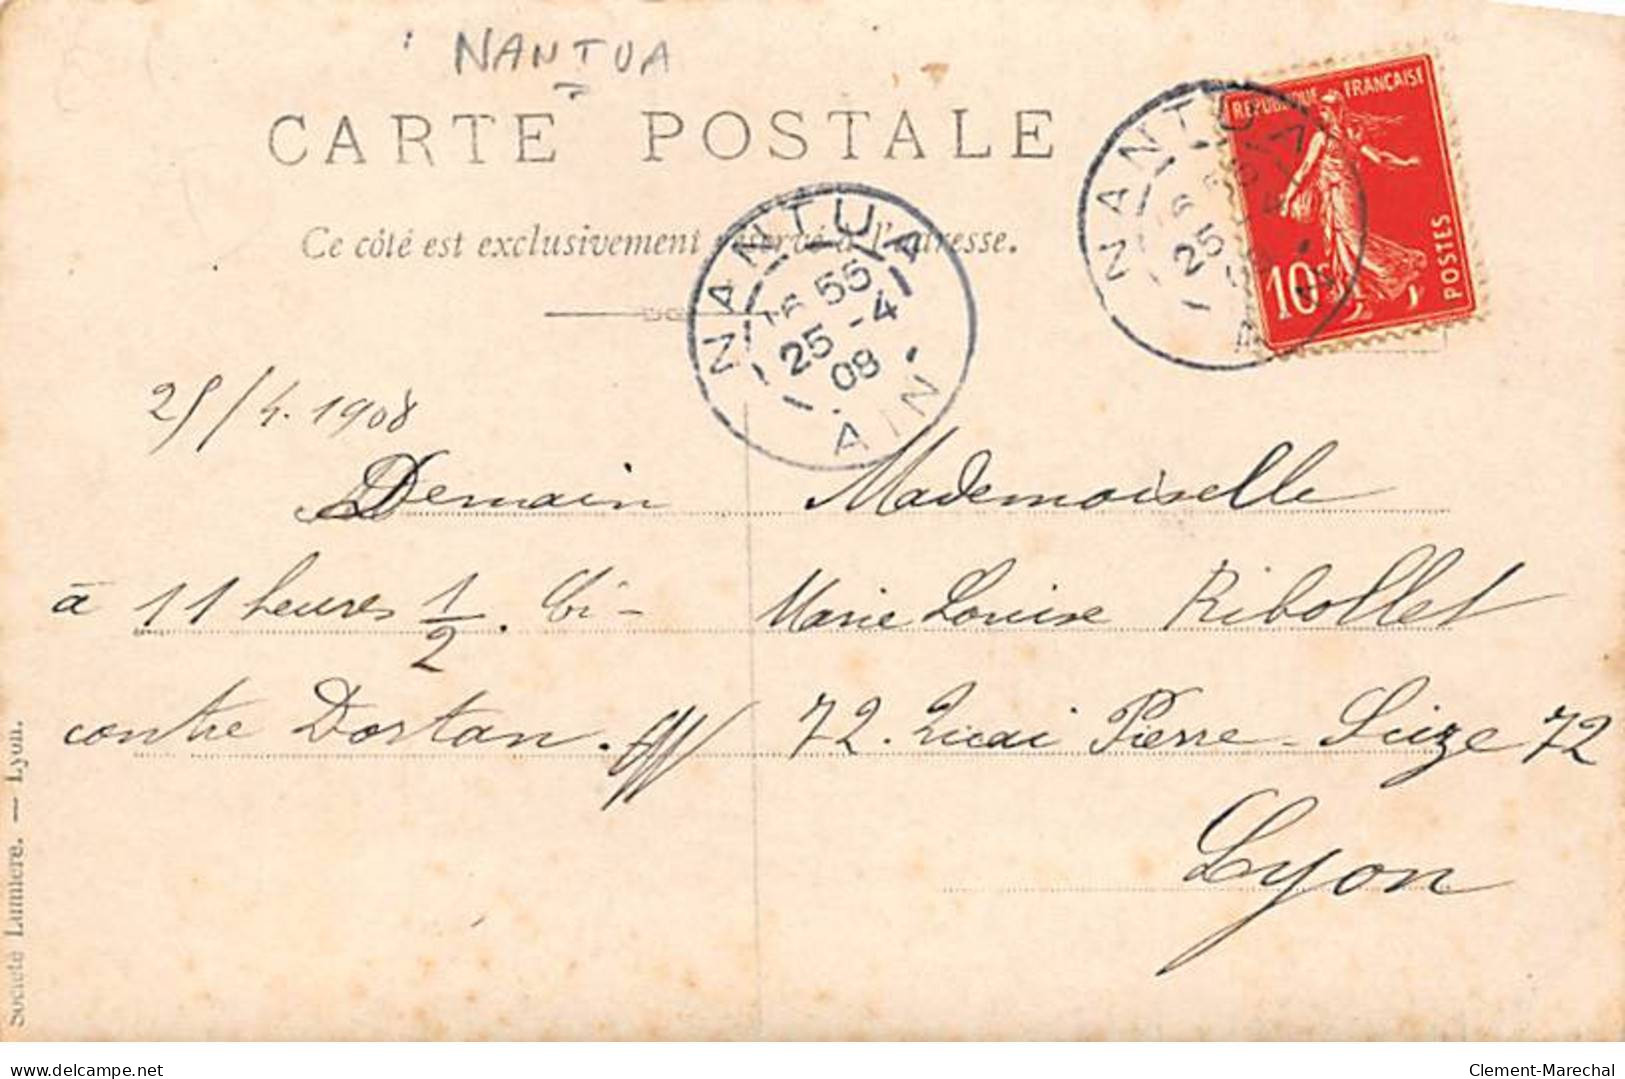 NANTUA
CARTE POSTALE
Ce côté est exclusivement réservé à l'adresse.
NANTUA
16 55
25 -4
08
AIN
NANTUA
25
RÉPUBLIQUE FRANÇAISE
POSTES
10c
25/4.1908
Demain
à 11 heures 1/2. Ci-
contre Dortan.
Mademoiselle
Marie Louise Ribollet
72. Quai Pierre-Scize 72
Lyon
Société Lumière. — Lyon.
delcampe.net
Clement-Marechal